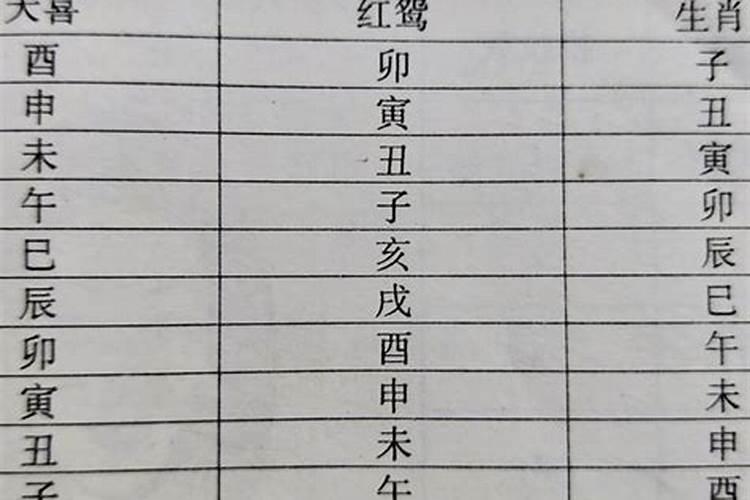 天喜 红鸳 生肖
酉 卯 子
申 寅 丑
未 丑 寅
午 子 卯
巳 亥 辰
辰 戌 巳
卯 酉 午
寅 申 未
丑 未 申
子 午 酉